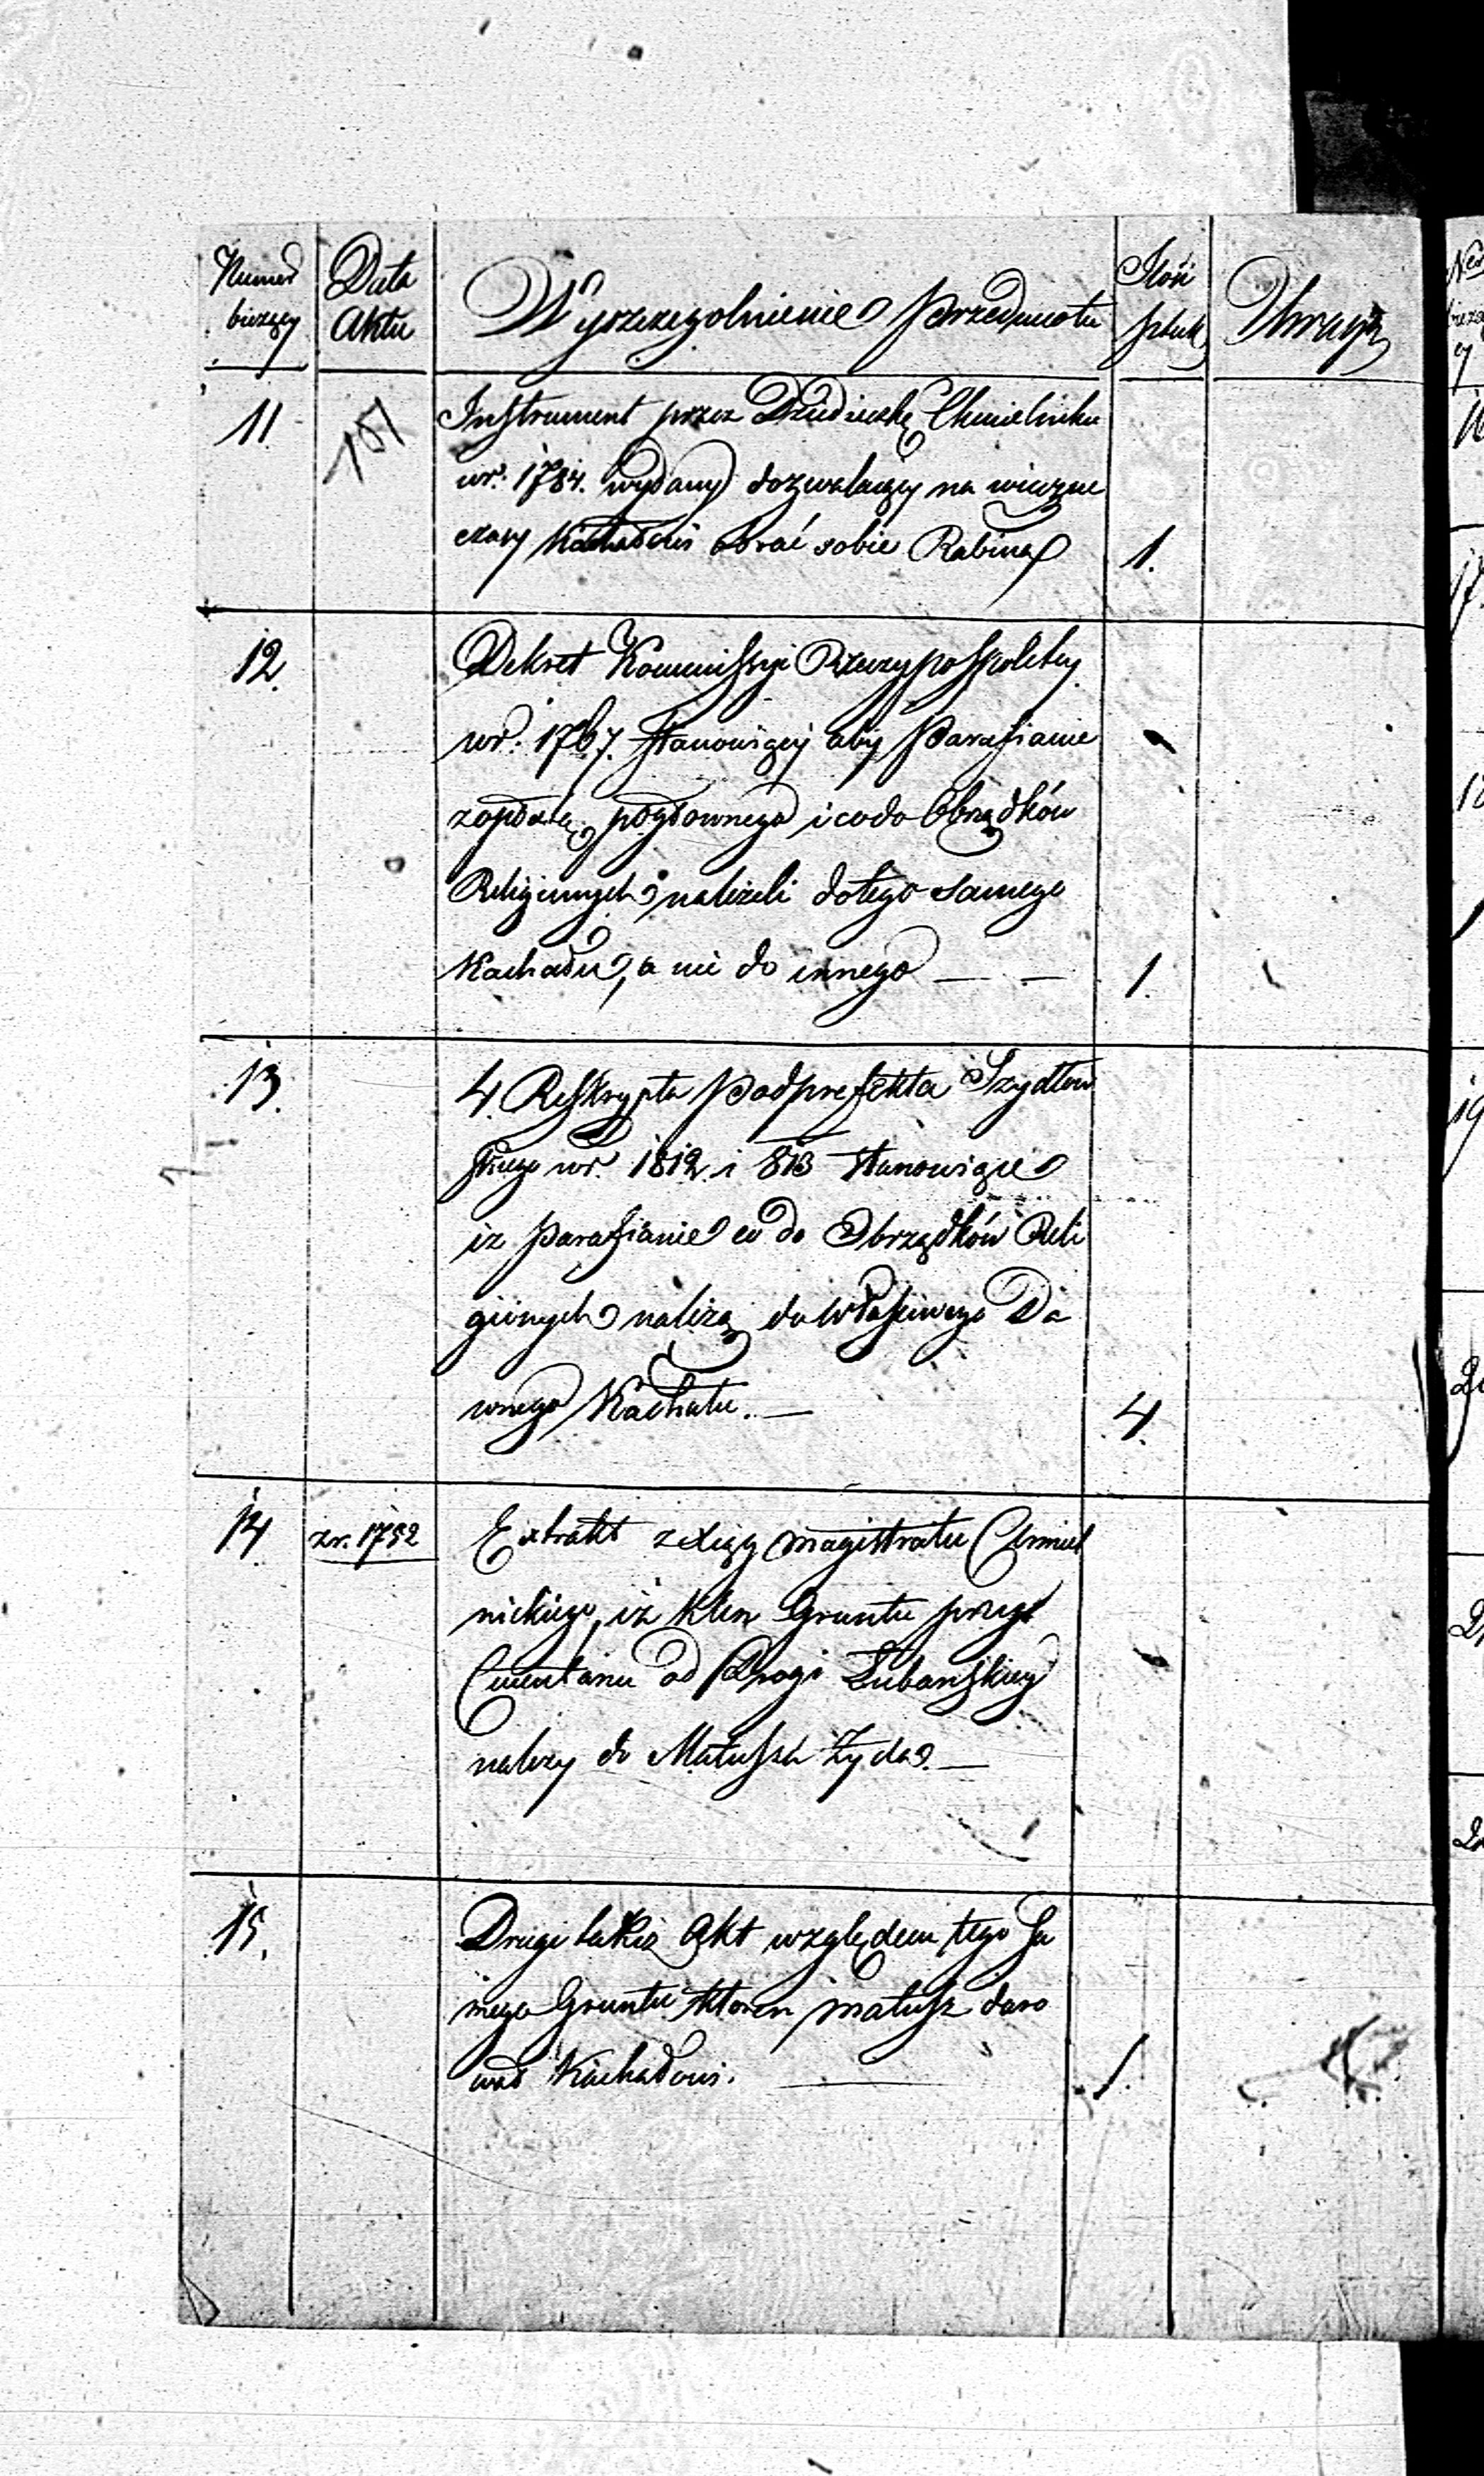 Numer bieżący
Data Aktu
Wyszczególnienie Przedmiotu
Ilość sztuk
Uwagi
11
Instrument przez Dziedziczkę Chmielnika
wr. 1784. wydany dozwalaiący na wieczne
czasy Kachałowi obrać sobie Rabina
1.
12.
Dekret Kommissyi Rzeczypospolitey
wr. 1767. stanowiący aby Parafianie
zopłatą pogłownego i codo Obrządków
Religijnych należeli dotego samego
Kachału, a nie do innego — —
1.
13.
4. Reskrypta Podprefekta Szydłow
skiego wr. 1812. i 813 stanowiące
iż Parafianie co do Obrządków Reli
giinych należą do właściwego Da
wnego Kachału. —
4.
14.
zr. 1752
Extrakt zxiąg Magistratu Chmiel
nickiego, iż kten Gruntu przy
Cmentarzu od Drogi Lubanskiey
należy do Matussa Żyda. —
15.
Drugi takiż Akt względem tego sa
mego Gruntu ktoren Matusz daro
wał Kachałowi. —
1.